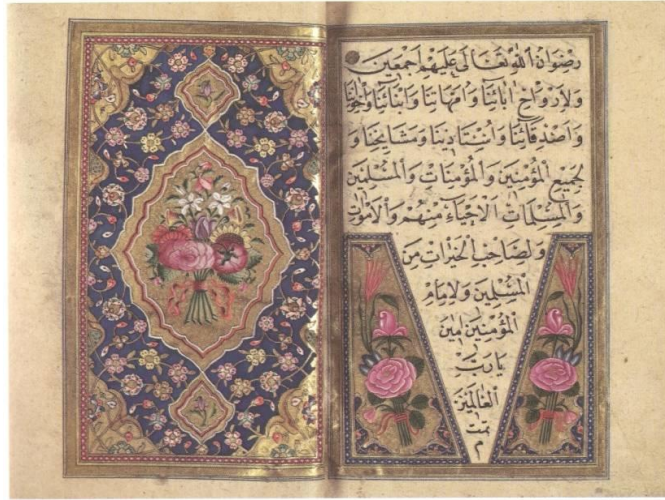 رِضْوَانُ اللهِ تَعَالَى عَلَيْهِمْ اَجْمَعِينَ
وَلِاَرْوَاحِ اٰبَائِنَا وَاُمَّهَاتِنَا وَاَبْنَائِنَا وَاِخْوَانِنَا
وَاَصْدِقَائِنَا وَاُسْتَادِينَا وَمَشَايِخِنَا وَ
لِجَمِيعِ الْمُؤْمِنِينَ وَالْمُؤْمِنَاتِ وَالْمُسْلِمِينَ
وَالْمُسْلِمَاتِ الْاَحْيَاءِ مِنْهُمْ وَالْاَمْوَاتِ
وَلِصَاحِبِ الْخَيْرَاتِ مِنَ
الْمُسْلِمِينَ وَلِاِمَامِ
الْمُؤْمِنِينَ اٰمِينَ
يَا رَبَّ
الْعَالَمِينَ
تمت
م